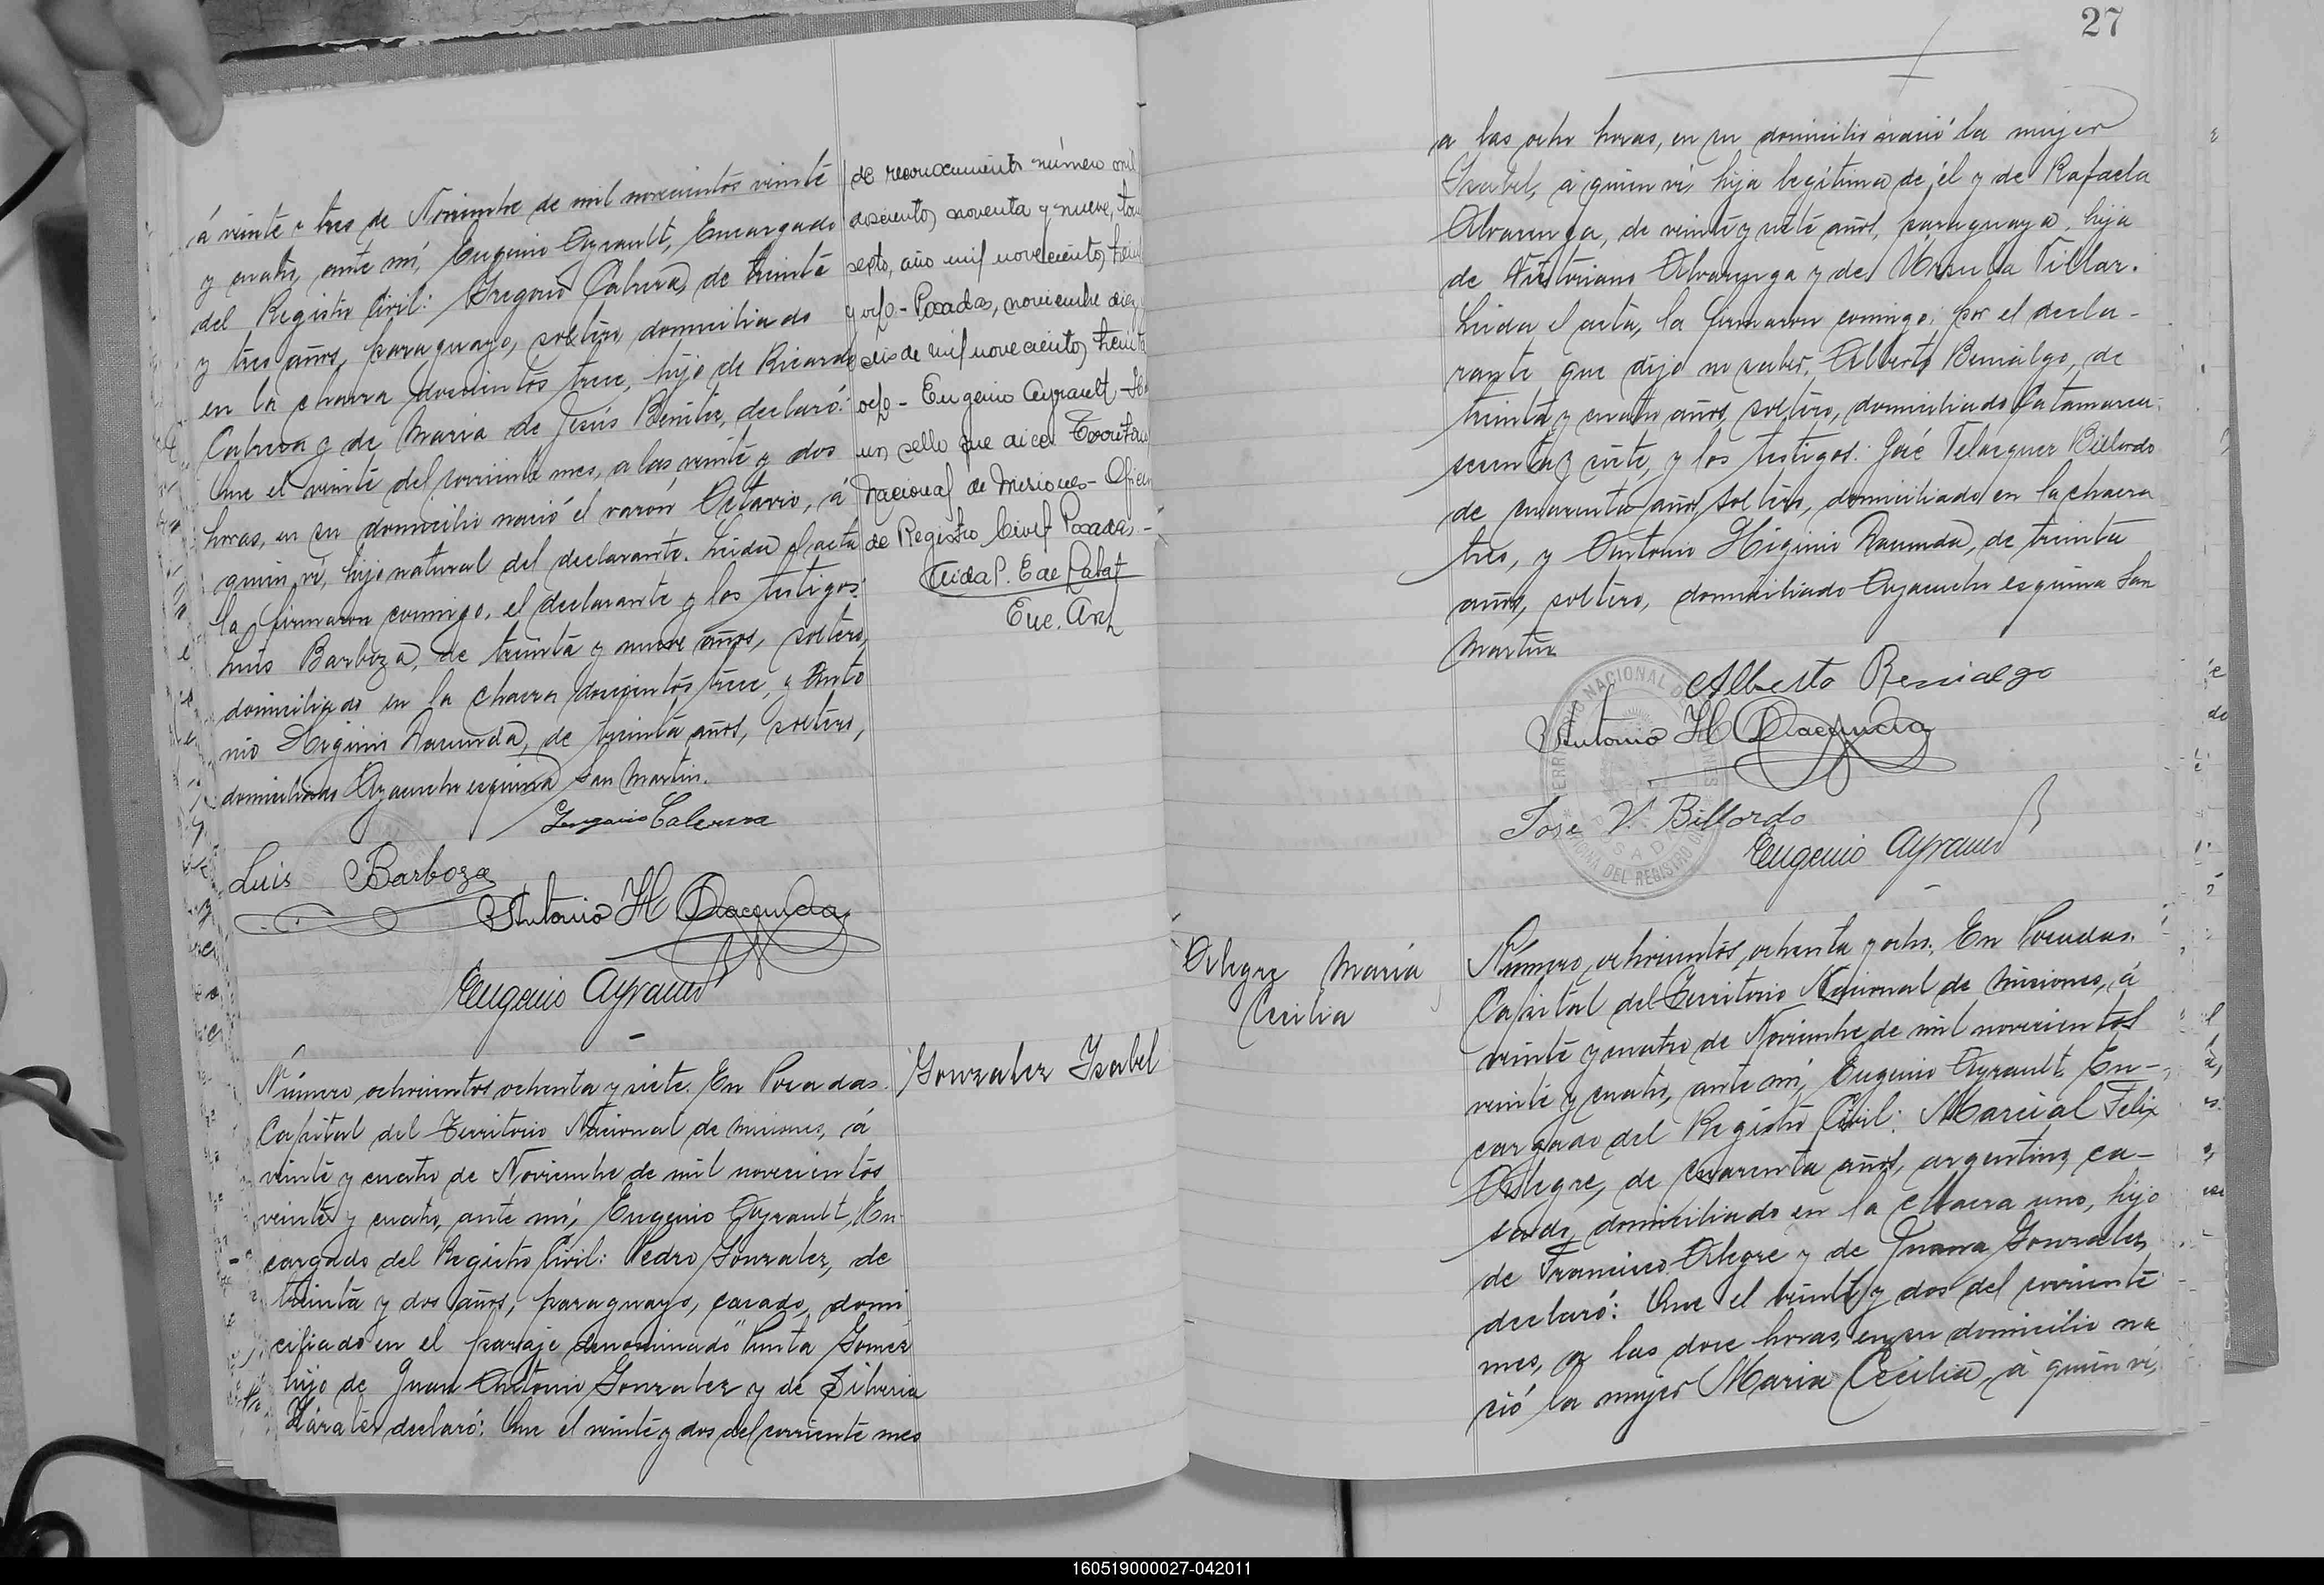 á veinte y tres de Noviembre de mil novecientos veinte
y cuatro, ante mí, Eugenio Ayrault, Encargado
del Registro Civil: Gregorio Cabrera, de treinta
y tres años, paraguayo, soltero, domiciliado
en la chacra doscientos trece, hijo de Ricardo
Cabrera y de Maria de Jesús Benitez, declaró:
Que el veinte del corriente mes, a las veinte y dos
horas, en su domicilio nació el varón Octavio, á
quien ví, hijo natural del declarante. Leida el acta
la firmaron conmigo, el declarante y los testigos:
Luis Barboza, de treinta y nueve años, soltero,
domiciliado en la chacra doscientos trece, y Anto
nio Higinio Nacunda, de treinta años, soltero,
domiciliado Ayacucho esquina San Martin.
Gregorio Cabrera
Luis Barboza
Antonio H Ñacunda
Eugenio Ayrault
de reconocimiento número mil
doscientos noventa y nueve, tomo
septo, año mil novecientos trein
y ocho - Posadas, noviembre diez y
séis de mil novecientos treinta
ocho - Eugenio Ayrault - Hay
un sello que dice: Territorio
Nacional de Misiones - Oficina
de Registro Civil Posadas -
Enc. Arch
Número ochocientos ochenta y siete. En Posadas.
Capital del Territorio Nacional de Misiones, á
veinte y cuatro de Noviembre de mil novecientos
veinte y cuatro, ante mí, Eugenio Ayrault, En-
cargado del Registro Civil: Pedro Gonzalez, de
treinta y dos años, paraguayo, casado, domi
ciliado en el paraje denominado "Punta Gomez
hijo de Juan Antonio Gonzalez y de Silveria
Zárate, declaró: Que el veinte y dos del corriente mes
Gonzalez Isabel
27
a las ocho horas, en su domicilio nació la mujer
Isabel, á quien ví, hija legítima de él y de Rafaela
Alvarenga, de veinte y siete años, paraguaya, hija
de Victoriano Alvarenga y de Ursula Villar.
Leida el acta, la firmaron conmigo: por el decla-
rante que dijo no saber, Alberto Benialgo, de
treinta y cuatro años, soltero, domiciliado Catamarca
sesenta y siete, y los testigos: José Velazquez Billordo
de cuarenta años, soltero, domiciliado en la chacra
tres, y Antonio Higinio Nacunda, de treinta
años, soltero, domiciliado Ayacucho esquina San
Martin
Alberto Benialgo
Antonio H Ñacunda
Jose V. Billordo
Eugenio Ayrault
TERRITORIO NACIONAL DE MISIONES
OFICINA DEL REGISTRO CIVIL
POSADAS
Alegre María
Cecilia
Número, ochocientos, ochenta y ocho. En Posadas.
Capital del Territorio Nacional de Misiones, á
veinte y cuatro de Noviembre de mil novecientos
veinte y cuatro, ante mí, Eugenio Ayrault, En-
cargado del Registro Civil: Marcial Felix
Alegre, de cuarenta años, argentino, ca-
sado, domiciliado en la chacra uno, hijo
de Francisco Alegre y de Juana Gonzalez
declaró: Que el veinte y dos del corriente
mes, a las doce horas, en su domicilio na
ció la mujer Maria Cecilia, á quien ví,
160519000027-042011